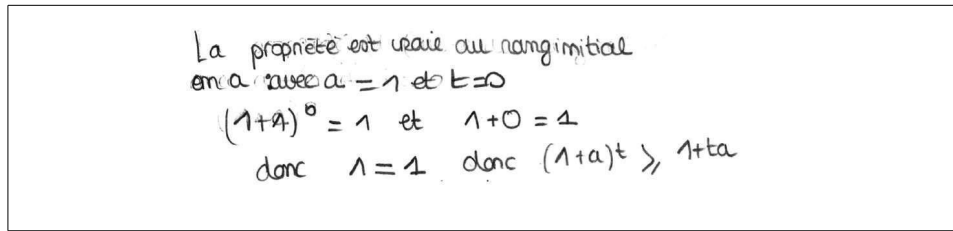 La propriété est vraie au rang initial
on a avec a = 1 et t=0
(1+1)⁰ = 1 et 1+0 = 1
donc 1 = 1 donc (1+a)ᵗ ⩾ 1+ta